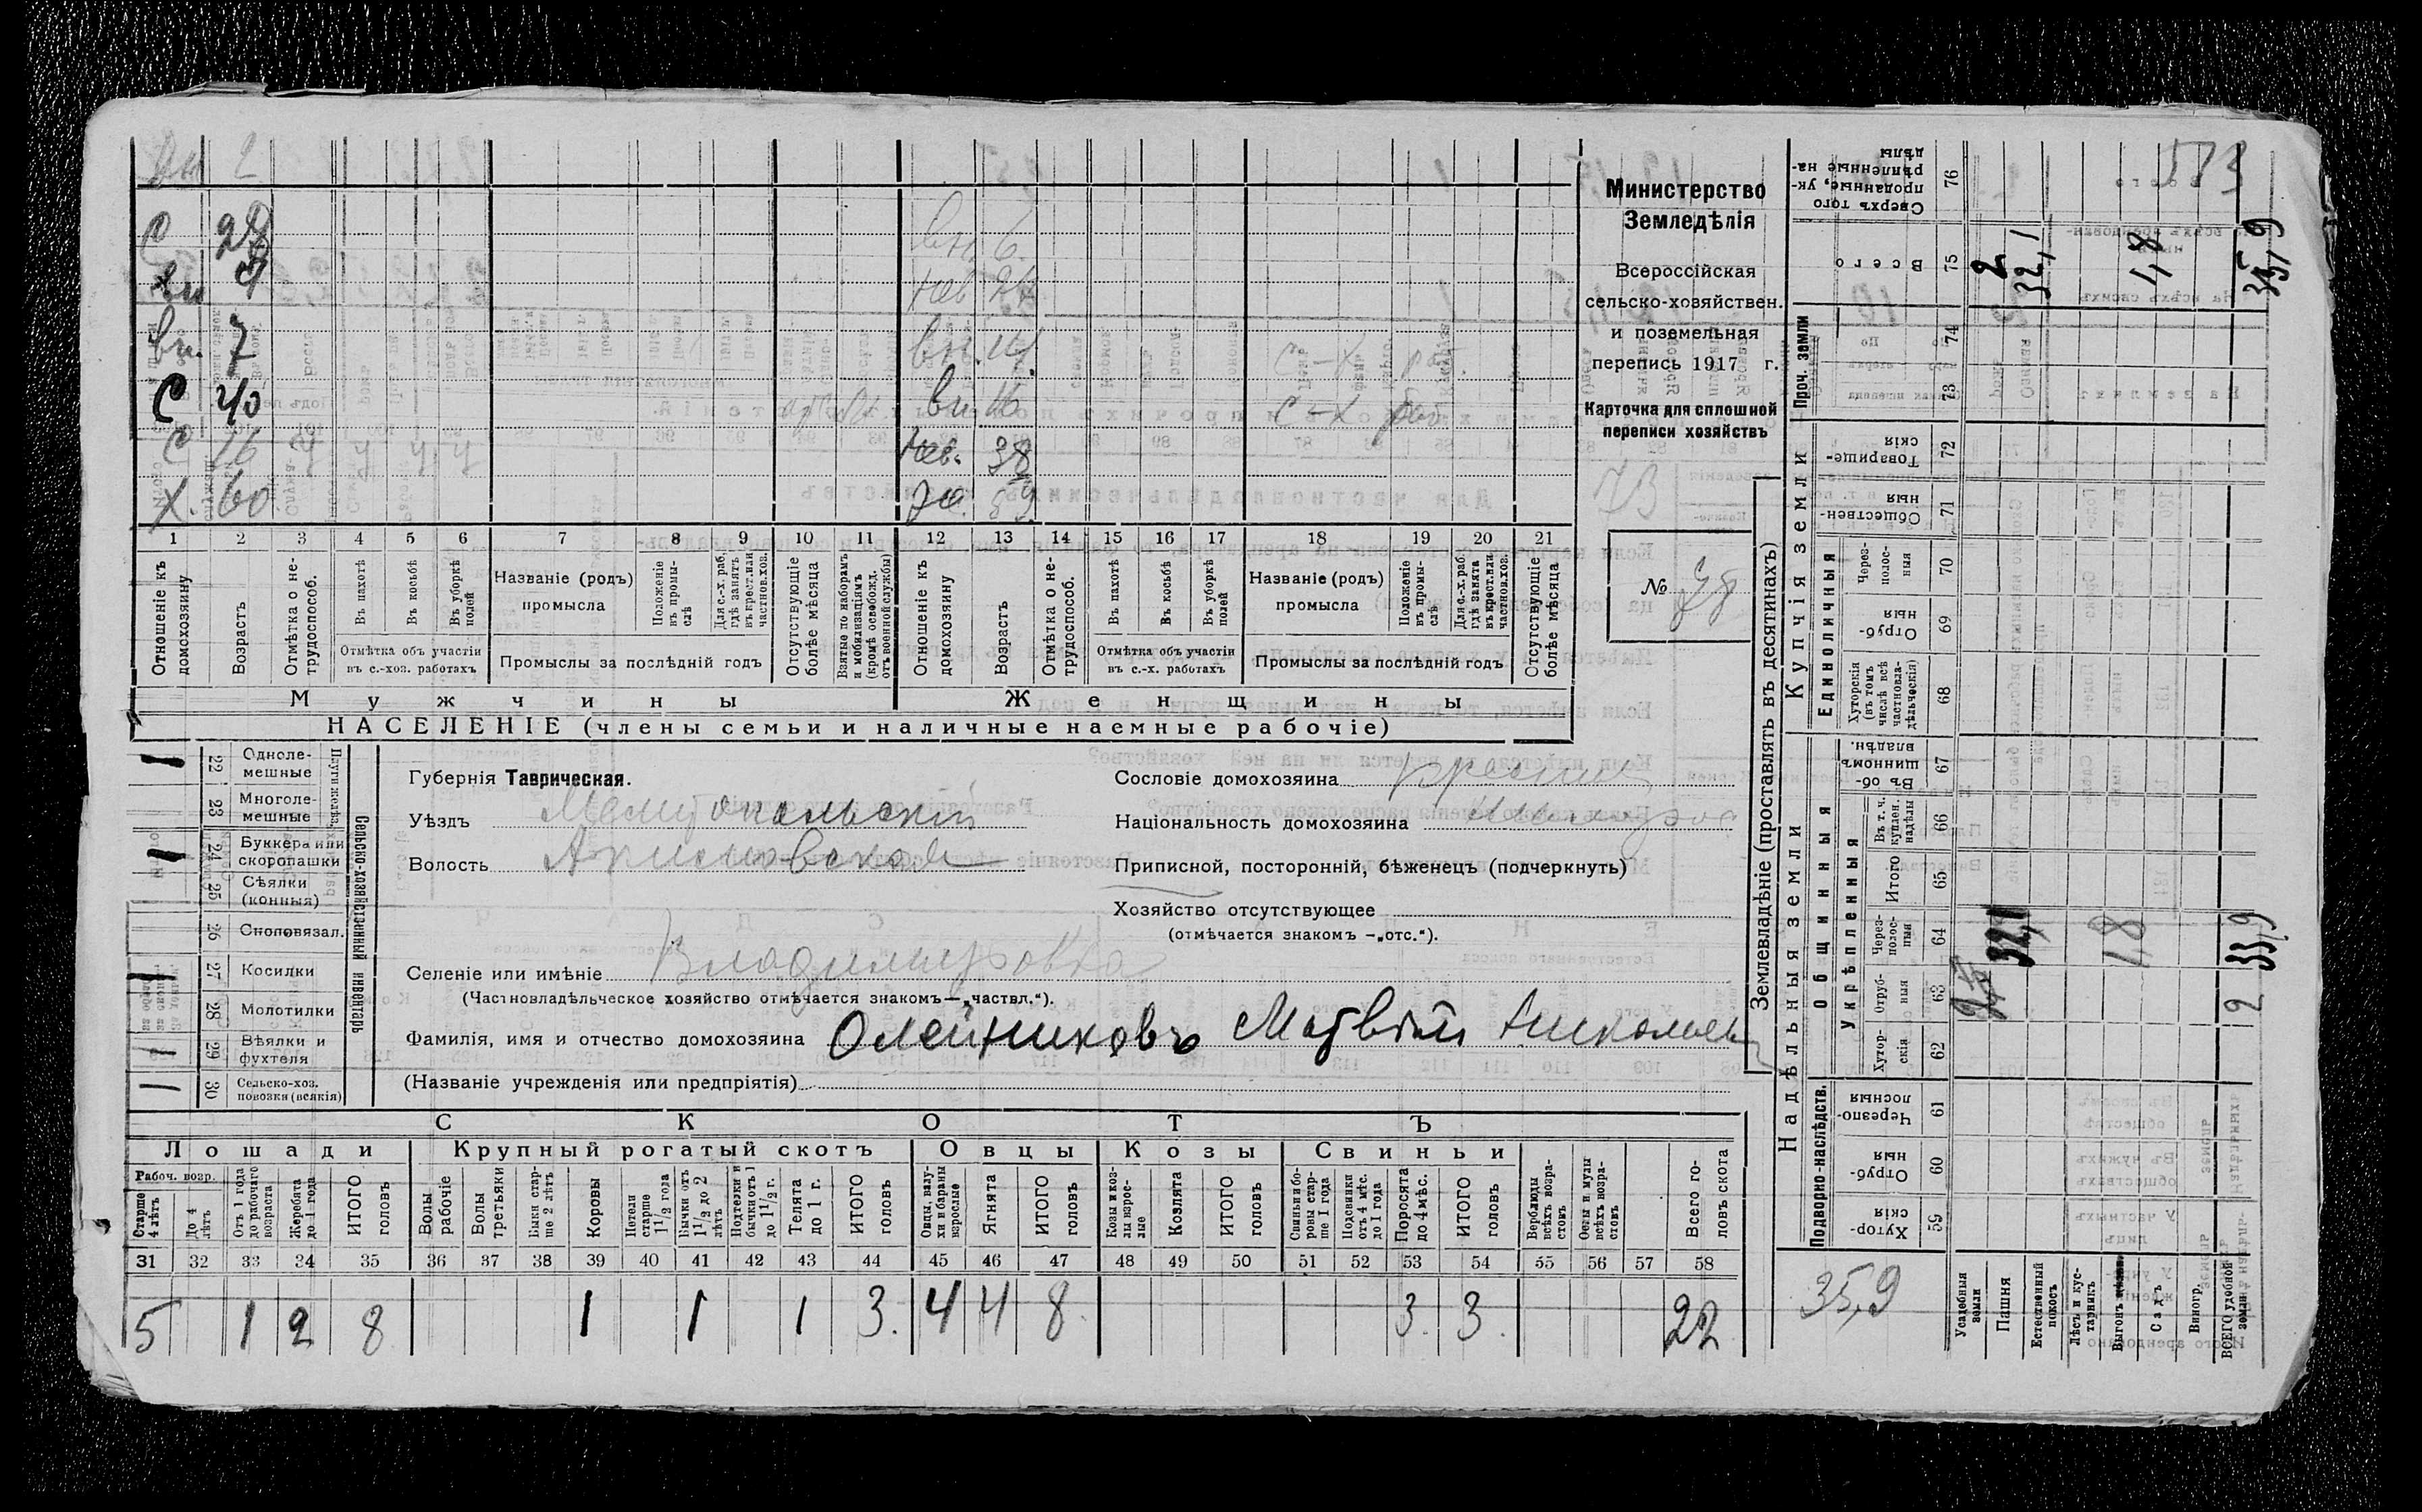 573
вн 2
С 28
вн 9 вн. 6.
нев 24
вн. 7 вн. 14. С-Х раб.
С 40 вн 16 С-Х раб.
С 16 нев. 38
Х. 60. ж. 59.
1 2 3 4 5 6 7 8 9 10 11 12 13 14 15 16 17 18 19 20 21
Отношеніе къ домохозяину
Возрастъ
Отмѣтка о нетрудоспособ.
Въ пахотѣ
Въ косьбѣ
Въ уборкѣ полей
Отмѣтка объ участіи въ с.-хоз. работахъ
Названіе (родъ) промысла
Положеніе въ промыслѣ
Для с.-х. раб. гдѣ занятъ въ крест. или частнов. хоз.
Промыслы за послѣдній годъ
Отсутствующіе болѣе мѣсяца
Взятые по наборамъ и мобилизаціямъ (кромѣ освобожд. отъ военной службы)
Отношеніе къ домохозяину
Возрастъ
Отмѣтка о нетрудоспособ.
Въ пахотѣ
Въ косьбѣ
Въ уборкѣ полей
Отмѣтка объ участіи въ с.-х. работахъ
Названіе (родъ) промысла
Положеніе въ промыслѣ
Для с.-х. раб. гдѣ занята въ крест. или частнов. хоз.
Промыслы за послѣдній годъ
Отсутствующіе болѣе мѣсяца
Мужчины Женщины
НАСЕЛЕНІЕ (члены семьи и наличные наемные рабочіе)
Министерство
Земледѣлія
Всероссійская
сельско-хозяйствен.
и поземельная
перепись 1917 г.
Карточка для сплошной
переписи хозяйствъ
73
№ 78
Сельско-хозяйственный инвентарь
Плуги желѣз.
1 22 Однолемешные
23 Многолемешные
1 24 Буккера или скоропашки
25 Сѣялки (конныя)
26 Сноповязал.
1 27 Косилки
28 Молотилки
1 29 Вѣялки и фухтеля
1 30 Сельско-хоз. повозки (всякія)
Губернія Таврическая.
Уѣздъ Мелитопольскій
Волость
Селеніе или имѣніе Владимировка
(Частновладѣльческое хозяйство отмѣчается знакомъ—„частвл.“).
Фамилія, имя и отчество домохозяина Олейниковъ Матвѣй
(Названіе учрежденія или предпріятія)
Сословіе домохозяина
Національность домохозяина
Приписной, посторонній, бѣженецъ (подчеркнуть)
Хозяйство отсутствующее
(отмѣчается знакомъ —„отс.“).
СКОТЪ
Лошади Крупный рогатый скотъ Овцы Козы Свиньи
Рабоч. возр.
Старше 4 лѣтъ
До 4 лѣтъ
Отъ 1 года до рабочаго возраста
Жеребята до 1 года
ИТОГО головъ
Волы рабочіе
Волы третьяки
Быки старше 2 лѣтъ
Коровы
Нетели старше 1 1/2 года
Бычки отъ 1 1/2 до 2 лѣтъ
Подтелки и бычки отъ 1 до 1 1/2 г.
Телята до 1 г.
ИТОГО головъ
Овцы, валухи и бараны взрослые
Ягнята
ИТОГО головъ
Козы и козлы взрослые
Козлята
ИТОГО головъ
Свиньи и боровы старше 1 года
Подсвинки отъ 4 мѣс. до 1 года
Поросята до 4 мѣс.
ИТОГО головъ
Верблюды всѣхъ возрастовъ
Ослы и мулы всѣхъ возрастовъ
Всего головъ скота
31 32 33 34 35 36 37 38 39 40 41 42 43 44 45 46 47 48 49 50 51 52 53 54 55 56 57 58
5 1 2 8 1 1 1 3. 4 4 8. 3. 3. 22
Землевладѣніе (проставлять въ десятинахъ)
Надѣльныя земли
Купчія земли
Проч. земли
Подворно-наслѣдств.
Общинныя
Укрѣпленныя
Единоличныя
Хуторскія 59
Отрубныя 60
Черезполосныя 61
Хуторскія 62
Отрубныя 63
Черезполосныя 64 32,1 1,8 33,9
Итого 65
Въ т. ч. куплен. надѣлы 66
Въ общинномъ владѣн. 67
Хуторскія (въ томъ числѣ всѣ частновладѣльческія) 68
Отрубныя 69
Черезполосныя 70
Общественныя 71
Товарищескія 72
73
74
Всего 75 2 32,1 1,8 35,9
Сверхъ того проданные, укрѣпленные надѣлы 76
35,9
Усадебныя земли
Пашня
Естественный покосъ
Лѣсъ и кустарникъ
Выгонъ
Садъ
Виногр.
ВСЕГО удобной земли